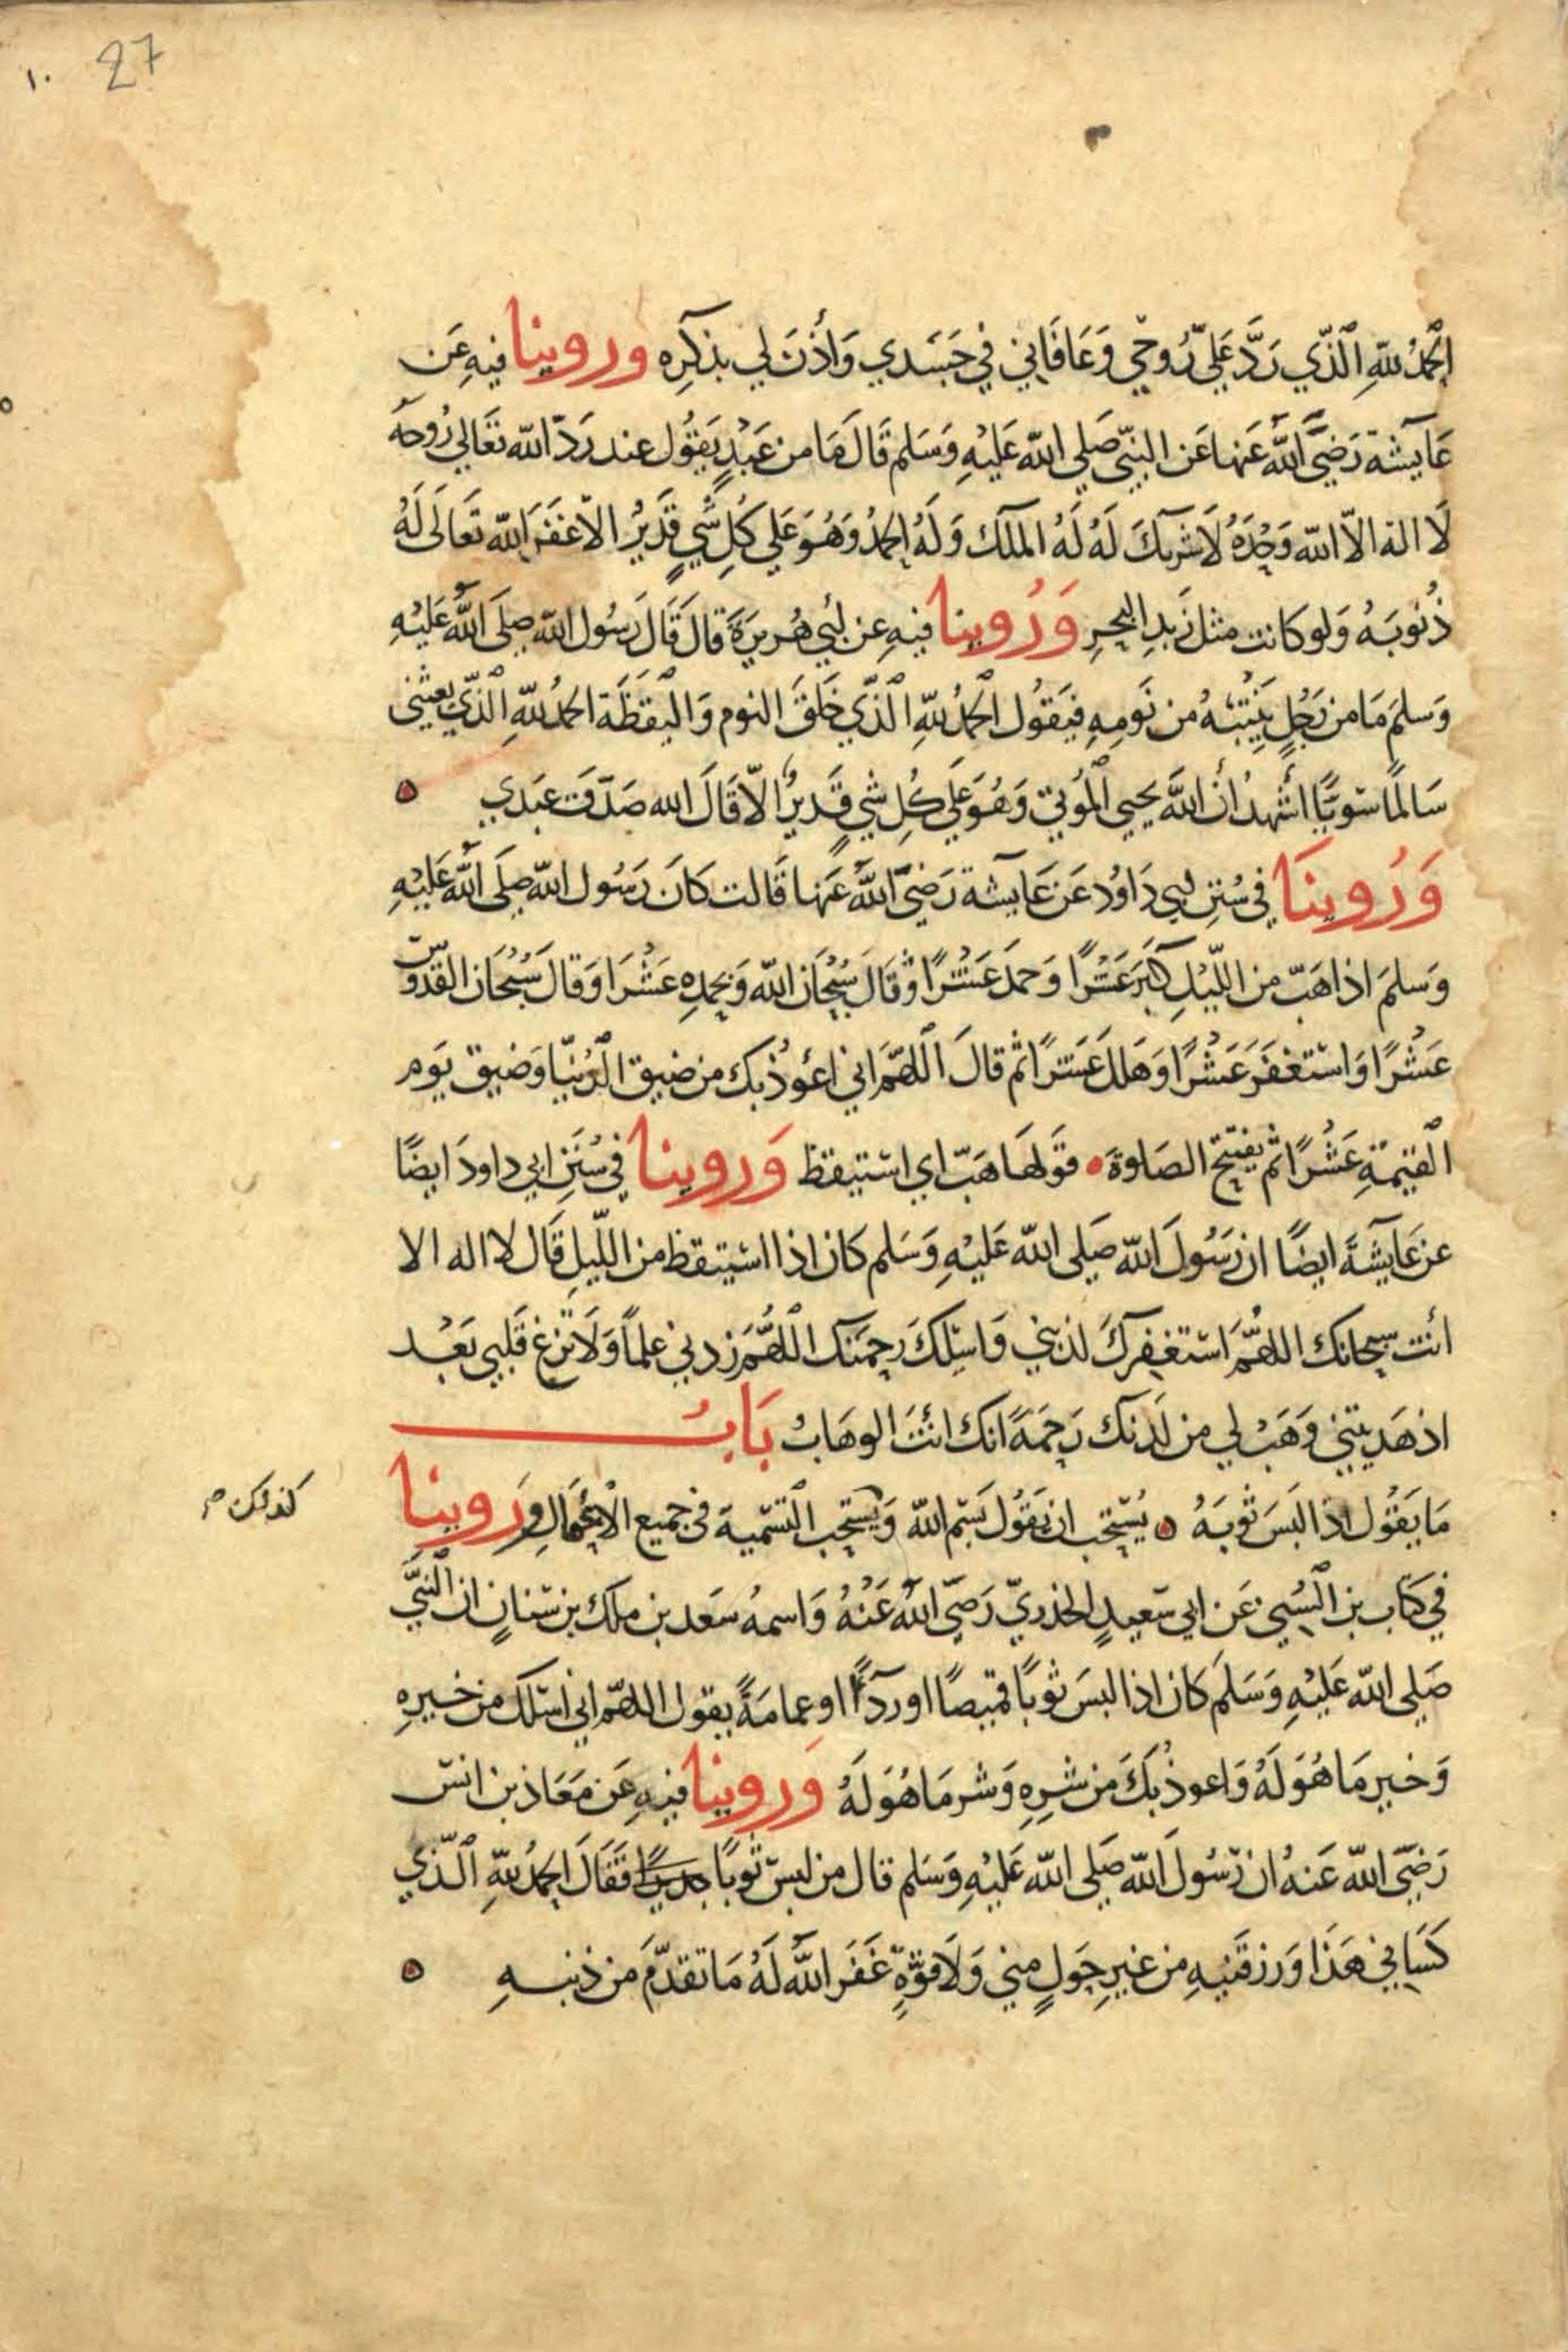 ١٠ 27
الحمدُ للهِ الَّذي رَدَّ عَليّ رُوحي وَعَافَاني في جَسَدي وَأذنَ لي بذكرِه وروينا فيهِ عَن
عَايشة رَضيَ اللهُ عَنها عَن النبيّ صَلي الله عَليْهِ وَسَلم قَالَ مَا من عَبْدٍ يَقوُل عند رَدّ الله تعَالي رُوحهُ
لَا اله الاّ الله وَحْدَهُ لَا شريكَ لَهُ لَهُ الملك وَلَهُ الحمدُ وَهُوَ عَلي كُلِ شَيٍ قَدَيرُ الا غفَرَ الله تَعَالَى لَهُ
ذُنوبَهُ وَلو كانت مثل زَبدِ البحرِ وَرُوينا فيهِ عن ابي هُريرَةَ قالَ قَالَ رَسُول الله صِلَى اللهُ عَليْهِ
وَسلمَ مَا من رَجُلٍ يَنِتُبهُ من نَومِهِ فيَقوُل الحمدُ للهِ الَّذي خَلقَ النوم وَاليَقظَة الحمدُ للهِ الَّذي بعثني
سَالمًا سَويًّا اشَهدُ انَ اللهَ يحيي المُوتي وَهُوَ عَلَي كُلِ شيٍ قَديرُ الاّ قَالَ الله صَدَقَ عبَدي ه
وَرُوينَا في سُنَنِ ابي دَاوُد عَن عَايشة رَضيَ اللهُ عَنها قَالت كانَ رَسُول الله صِلَى اللهُ عَليْهِ
وَسلمَ اذا هَبّ من اللّيْلِ كبّرَ عَشْرًا وَحمدَ عَشْرًا وَقَالَ سُبْحَانَ الله وَبحمدِه عَشْرَا وَقالَ سُبْحَانَ القدوُّسِ
عَشْرًا وَاسْتغفَرَ عَشْرًا وَهَلل عَشرًا ثم قالَ اللهمَّ اني اعُوذُ بك من ضيق الدُّنيَا وَضيق يَوم
القيمةِ عَشْرًا ثم يفتتح الصَلوةَ قوَلهَا هَبّ اي استيقظ وَروينا في سُنَنِ ابي داودَ ايضًا
عن عَايشَةَ ايضًا ان رَسُولَ الله صَلى الله عَليْهِ وَسَلم كان اذا استيقظ من اللّيلِ قَال لا اله الا
انت سبحانك اللهمَّ اسَتغفركَ لذنبي وَاسئلكَ رحمتك اللهُمَّ زدني علماً وَلَا تزغ قَلبي بَعْد
اذ هَديتني وَهَبْ لي من لَدنك رَحمَةً انك انتَ الوهَابُ بَابُ
مَا يَقوُل اذا لبَسَ ثوبَهُ ه يُسْتحب ان يَقوُل بسَم الله وَيستحب التسَمية في جميع الاعمَالِ وَروينا
كذلك
في كتاب بن السُني عَن ابي سَعيدٍ الخدريّ رَضيَ اللهُ عَنْهُ وَاسمهُ سَعد بن ملك بن سَنانٍ ان النبيَّ
صَلي الله عَليْهِ وَسَلَم كان اذا لبسَ ثوبًا قميصًا او ردآءً او عمامَةً يقول اللهمّ اني اسَئلك من خيرهِ
وَخير مَا هُوَ لَهُ وَاعوذُ بكَ من شرِهِ وَشر مَا هُوَ لَهُ وَروينا فيهِ عَن مَعَاذ بن انسَ
رَضيَ الله عَنهُ ان رَسُولَ الله صَلي الله عَليْهِ وَسَلم قال من لبسَ ثوبًا جديدًا فقَالَ الحمدُ للهِ الّذي
كسَاني هَذا وَرزقَنيهِ من غيرِ حَولٍ مني وَلَا قوَّةٍ غَفَر اللهُ لَهُ مَا تقدَّمَ من ذنبهِ ه